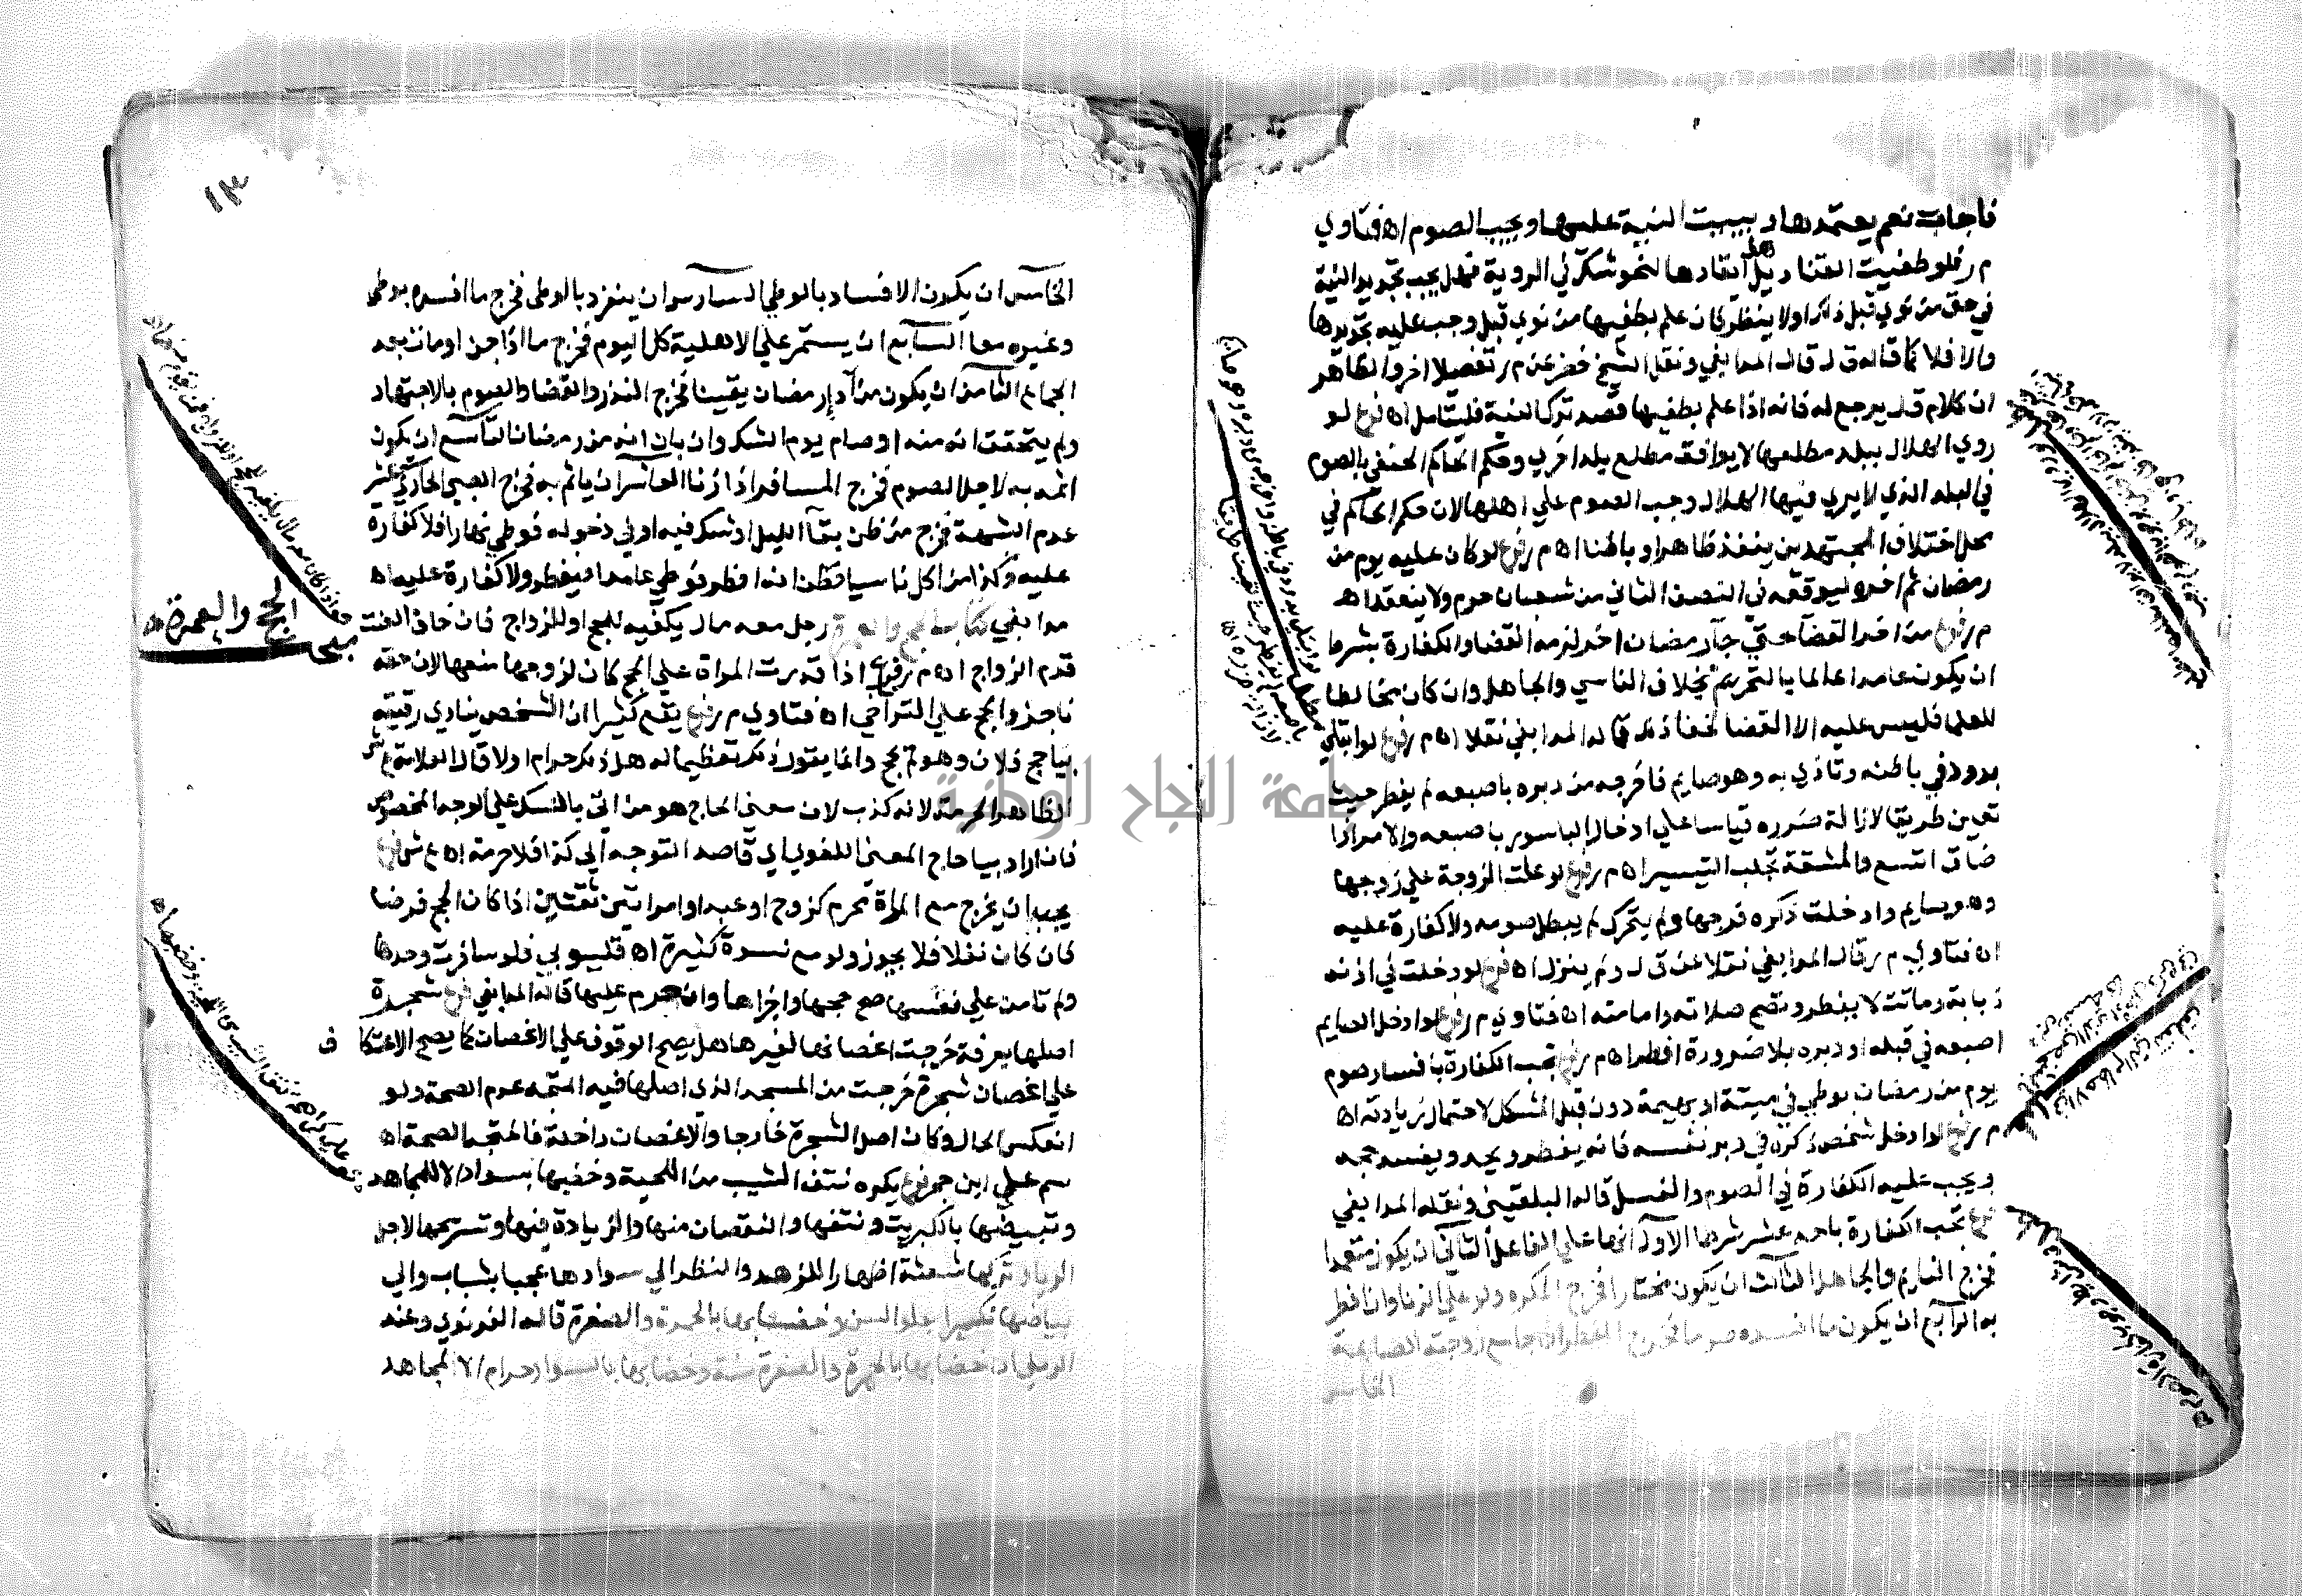 فاجاب نعم يعتمدها ويبيت النية عليها ويجب الصوم اه فتاوي
م ر فلو طفيت القناديل بعد ايقادها لنحو شك في الروية فهل يجب تجديد النية
في حق من نوي قبل ذلك او لا ينظر كان علم بطفيها من نوي قبل وجب عليه تجديدها
والا فلا كما قاله ق ل قال المدابغي ونقل الشيخ خضر عن م ر تفصيلا اخر والظاهر
ان كلام ق ل يرجع له فانه اذا علم بطفيها قصد ترك النية فليتامل اه فرع لو
روي الهلال ببلد مطلعها لا يوافق مطلع بلد اخري وحكم الحاكم الحنفي بالصوم
في البلد الذي لا يري فيها الهلال وجب الصوم علي اهلها لان حكم الحاكم في
محل اختلاف المجتهدين ينفذ ظاهرا وباطنا اه م ر فرع لو كان عليه يوم من
رمضان ثم اخره ليوقعه في النصف الثاني من شعبان حرم ولا ينعقد اه
م ر فرع من اخر القضا حتي جا رمضان اخر لزمه القضا والكفارة بشرط
ان يكون عامدا عالما بالتحريم بخلاف الناسي والجاهل وان كان مخالطا
للعلما فليس عليه الا القضا لخفا ذلك قاله المدابغي نقلا اه م ر فرع لو ابتلي
بدود في باطنه وتاذي به وهو صايم فاخرجه من دبره باصبعه لم يفطر حيث
تعين طريقا لازالة ضرره قياسا علي ادخال الباسور باصبعه والامر اذا
ضاق اتسع والمشقة تجلب التيسير اه م ر فرع لو علت الزوجة علي زوجها
وهو صايم وادخلت ذكره فرجها ولم يتحرك لم يبطل صومه ولا كفارة عليه
اه فتاوي م ر قال المدابغي نقلا عن ق ل ولم ينزل اه فرع لو دخلت في اذنه
ذبابة وماتت لا يفطر وتصح صلاته وامامته اه فتاوي م ر فرع لو ادخل الصايم
اصبعه في قبله او دبره بلا ضرورة افطر اه م ر فرع تجب الكفارة بافساد صوم
يوم من رمضان بوطي في ميتة او بهيمة دون قبل المشكل لاحتمال زيادته اه
م ر فرع لو ادخل شخص ذكره في دبر نفسه فانه يفطر ويحد ويفسد حجه
ويجب عليه الكفارة في الصوم والغسل قاله البلقيني ونقله المدابغي
فرع تجب الكفارة باحد عشر شرطا الاول انها علي الفاعل الثاني ان يكون متعمدا
فخرج النايم والجاهل الثالث ان يكون مختارا فخرج المكره ولو علي الزنا وان افطر
به الرابع ان يكون ما افسده صوما فخرج المفطر ان جامع زوجته الصايمة
الخامس
١٣
الخامس ان يكون الافساد بالوطي السادس ان ينفرد بالوطي فخرج ما افسده بوطي
وغيره معا السابع ان يستمر علي الاهلية كل اليوم فخرج ما اذا جن او مات بعد
الجماع الثامن ان يكون من اداء رمضان يقينا فخرج النذر والقضا والصوم بالاجتهاد
ولم يتحقق انه منه او صام يوم الشك وان بان انه من رمضان التاسع ان يكون
اثمه به لاجل الصوم فخرج المسافر اذا زنا العاشر ان ياثم به فخرج الصبي الحادي عشر
عدم الشبهة فخرج من ظن بقا الليل او شك فيه او في دخوله فوطي نهارا فلا كفارة
عليه وكذا من اكل ناسيا فظن انه افطر فوطي عامدا فيفطر ولا كفارة عليه اه
مدابغي كتاب الحج والعمرة رجل معه مال يكفيه للحج او للزواج فان خاف العنت
قدم الزواج اه م ر فرع اذا قدرت المراة علي الحج كان لزوجها منعها لان حقه
ناجز والحج علي التراخي اه فتاوي م ر فرع يقع كثيرا ان الشخص ينادي رقيقه
بيا حج فلان وهو لم يحج وانما يقول ذلك تعظيما له هل ذلك حرام او لا قال العلامة ع ش
الظاهر الحرمة لانه كذب لان معني الحاج هو من اتي بالنسك علي الوجه المخصوص
فان اراد بيا حاج المعني اللغوي اي قاصد التوجه الي كذا فلا حرمة اه ع ش فرع
يجب ان يخرج مع المراة محرم كزوج او عبد او امراتين ثقتين اذا كان الحج فرضا
فان كان نفلا فلا يجوز ولو مع نسوة كثيرة اه قليوبي فلو سافرت وحدها
ولم تامن علي نفسها صح حجها واجزاها وان حرم عليها قاله المدابغي فرع شجرة
اصلها بعرفة خرجت اغصانها لغيرها هل يصح الوقوف علي الاغصان كما يصح الاعتكاف
علي اغصان شجرة خرجت من المسجد الذي اصلها فيه المتجه عدم الصحة ولو
انعكس الحال وكان اصل الشجرة خارجا والاغصان داخلة فالمتجه الصحة اه
سم علي ابن حجر فرع يكره نتف الشيب من اللحية وخضبها بسواد الا للمجاهد
وتبييضها بالكبريت ونتفها والنقصان منها والزيادة فيها وتسريحها لاجل
الريا وتركها شعثة اظهارا للزهد والنظر الي سوادها عجبا بشباب والي
بياضها تكبرا بعلو السن وخضابها بالحمرة والصفرة قاله الغزنوي وعند
الرملي ان خضابها بالحمرة والصفرة سنة وخضابها بالسواد حرام الا لمجاهد
الحج والعمرة
مبحث
جامعة النجاح الوطنية